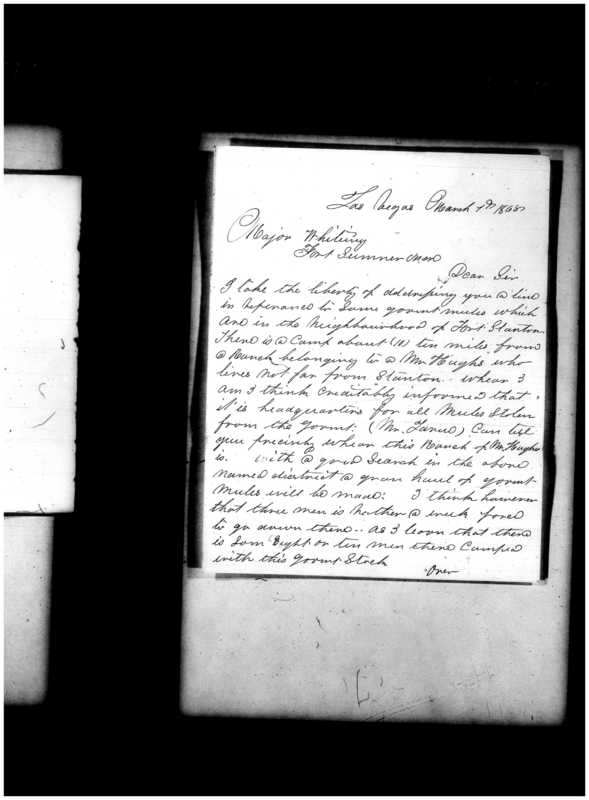 Las Vegas March 7th 1868
Major Whiting
Fort Sumner NM
Dear Sir
I take the liberty of addressing you a line
in referance to some govmt mules which
are in the Neighbourhood of Fort Stanton.
There is a Camp about (10) ten miles from
a Ranch belonging to a Mr. Hughs who
lives not far from Stanton.. whear I
am I think creditably informed that
it is headquarters for all Mules Stolen
from the Govmt. (Mr. ) Can tell
you precisely whear this Ranch of Mr Hughs
is. with a good Search in the above
named district a gran haul of govmt
Mules will be made: I think however
that three men is rather a weak force
to go down there.. as I learn that there
is Som Eight or ten men there Camped
with this Govmt Stock
Over